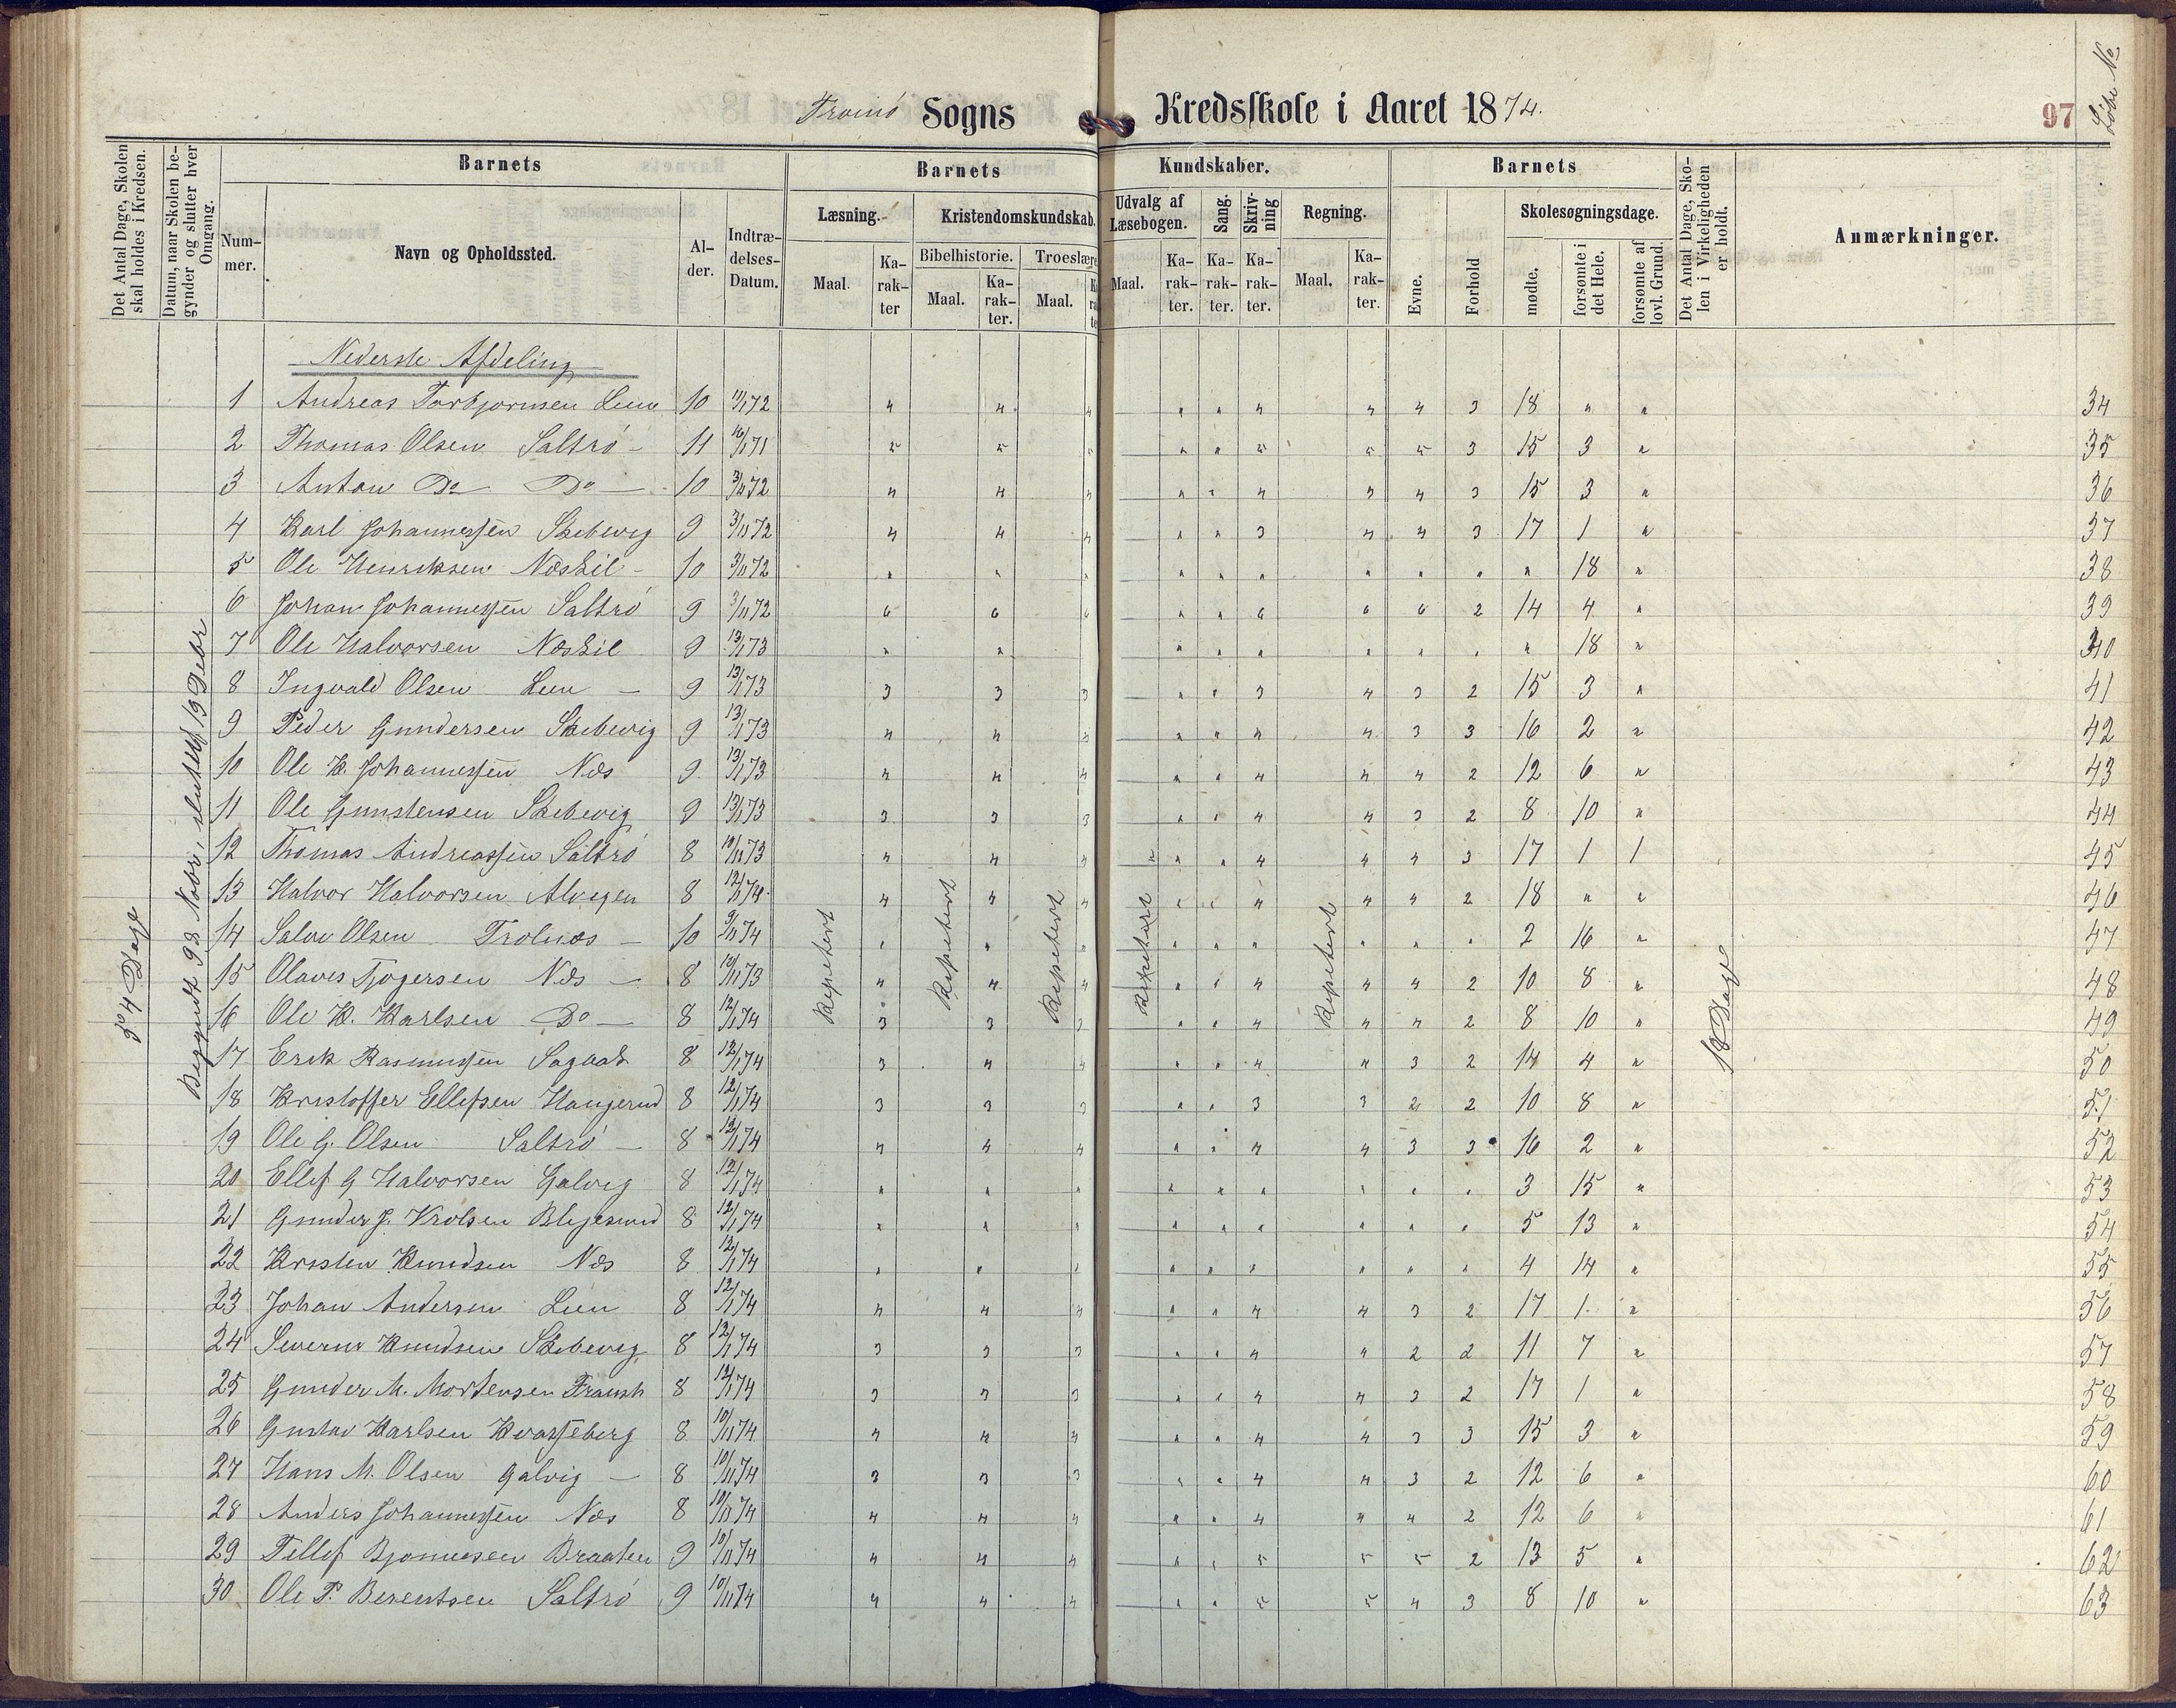 Tromö Sogns Kredsskole i Aaret 1874. 97 Löbe No
Det Antal Dage, Skolen skal holdes i Kredsen.
Datum, naar Skolen begynder og slutter hver Omgang.
Barnets
Nummer.
Navn og Opholdssted.
Alder.
Indtrædelses-Datum.
Barnets Kundskaber.
Læsning. Maal. Karakter
Kristendomskundskab.
Bibelhistorie. Maal. Karakter.
Troeslære Maal.
Udvalg af Læsebogen. Maal. Karakter.
Sang. Karakter.
Skrivning Karakter.
Regning. Maal. Karakter.
Barnets
Evne.
Forhold
Skolesøgningsdage.
mødte.
forsømte i det Hele.
forsømte af lovl. Grund.
Det Antal Dage, Skolen i Virkeligheden er holdt.
Anmærkninger.
Nederste Afdeling
1 Andreas Torbjornsen Lien 10 72 4 4 4 " " 4 4 4 3 18 " " 34
2 Thomas Olsen Saltrö - 11 71 5 5 5 " " 5 5 5 3 15 3 " 35
3 Anton Do Do - 10 3/11 72 4 4 4 " " 4 3 4 3 15 3 " 36
4 Karl Johannesen Skibevig 9 3/11 72 4 4 4 " " 3 4 4 3 17 1 " 37
5 Ole Henriksen Næskil - 10 3/11 72 " " " " " " " " " 18 " 38
6 Johan Johannesen Saltrö 9 3/11 72 6 6 6 " " 6 6 6 2 14 4 " 39
7 Ole Halvorsen Næskil 9 13/1 73 " " " " " " " " " 18 " 40
8 Ingvald Olsen Lien - 9 13/1 73 3 3 3 " " 3 4 3 2 15 3 " 41
9 Peder Gundersen Skibevig 9 13/1 73 4 4 4 " " 4 4 3 3 16 2 " 42
10 Ole K. Johannesen Næs 9 13/1 73 4 4 4 " " 4 4 4 2 12 6 " 43
11 Ole Gunstensen Skibevig 9 13/1 73 3 3 3 " " 4 4 3 2 8 10 " 44
12 Thomas Andreassen Saltrö 8 73 4 4 4 " " 4 4 4 3 17 1 1 45
13 Halvor Halvorsen Alvegen 8 12/1 74 4 4 4 " " 4 4 4 2 18 " " 46
14 Salve Olsen Trolnæs - 10 9/11 74 " " " " " " " " " 2 16 " 47
15 Olaves Tjogersen Næs - 8 73 4 4 4 " " 4 4 4 2 10 8 " 48
16 Ole K. Karlsen Do - 8 12/1 74 3 3 3 " " 4 4 4 2 8 10 " 49
17 Erik Rasmussen 8 12/1 74 3 4 4 " " 4 4 3 2 14 4 " 50
18 Kristoffer Ellefsen Haugerud 8 12/1 74 3 3 3 " " 3 3 2 2 10 8 " 51
19 Ole G. Olsen Saltrö - 8 12/1 74 4 4 4 " " 4 4 3 3 16 2 " 52
20 Ellef G Halvorsen Galvig 8 12/1 74 " " " " " " " " " 3 15 " 53
21 Gunder J. 8 12/1 74 " " " " " " " " " 5 13 " 54
22 Kristen Knudsen Næs 8 12/1 74 " " " " " " " " " 4 14 " 55
23 Johan Andersen Lien 8 12/1 74 4 4 4 " " 4 4 3 2 17 1 " 56
24 Severin Knudsen Skibevig 8 12/1 74 3 3 3 " " 4 4 2 2 11 7 " 57
25 Gunder M. Mortensen 8 12/1 74 3 3 3 " " 4 4 3 2 17 1 " 58
26 Gustav Karlsen Kvasseberg 8 10/11 74 4 4 4 " " 4 4 3 3 15 3 " 59
27 Hans M. Olsen Galvig - 8 10/11 74 3 3 3 " " 4 4 3 2 12 6 " 60
28 Anders Johannesen Næs 8 10/11 74 4 4 4 " " 4 4 4 2 12 6 " 61
29 Tellef Bjonnesen Braaten 9 10/11 74 4 4 4 " " 5 5 5 2 13 5 " 62
30 Ole P. Berentsen Saltrö 9 10/11 74 4 4 4 " " 5 5 4 3 8 10 " 63
Dage
Begyndt 98 Nobr, sluttet 19 Debr
Repetert
Repetert
Repetert
Repetert
Repetert
18 Dage